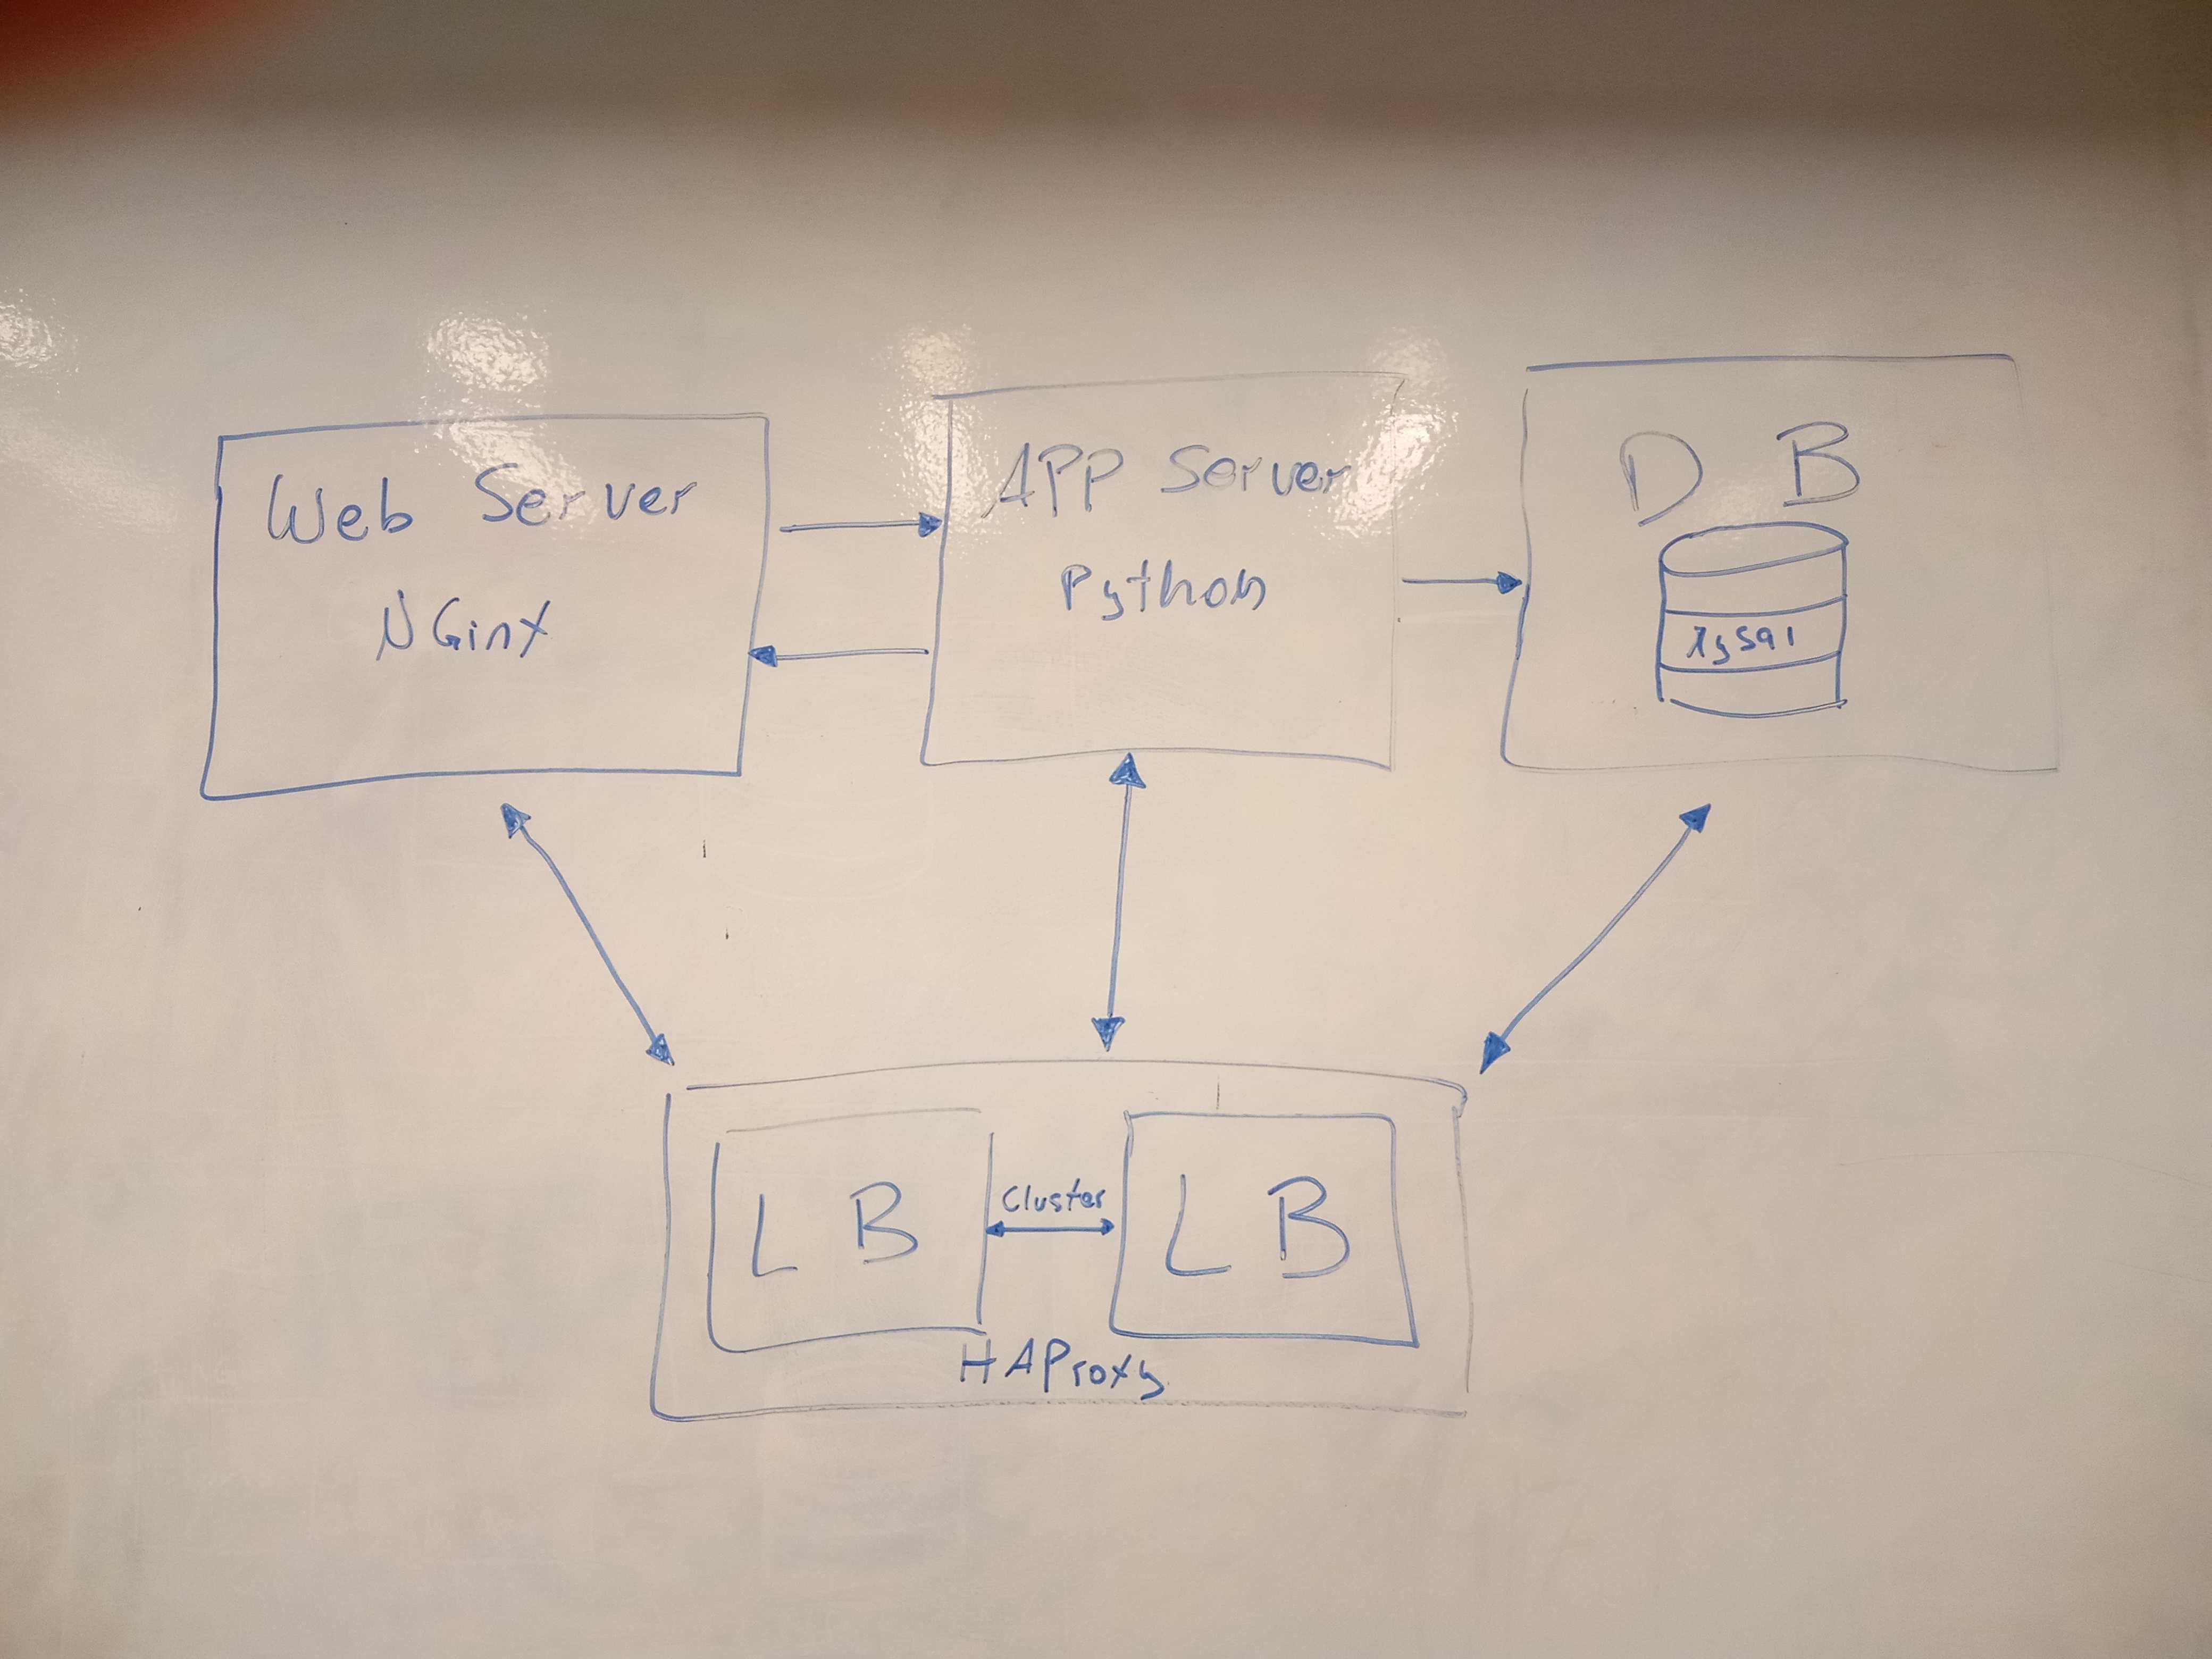 Web Server
NGinx
APP Server
Python
D B
MySql
L B
Cluster
L B
HAProxy